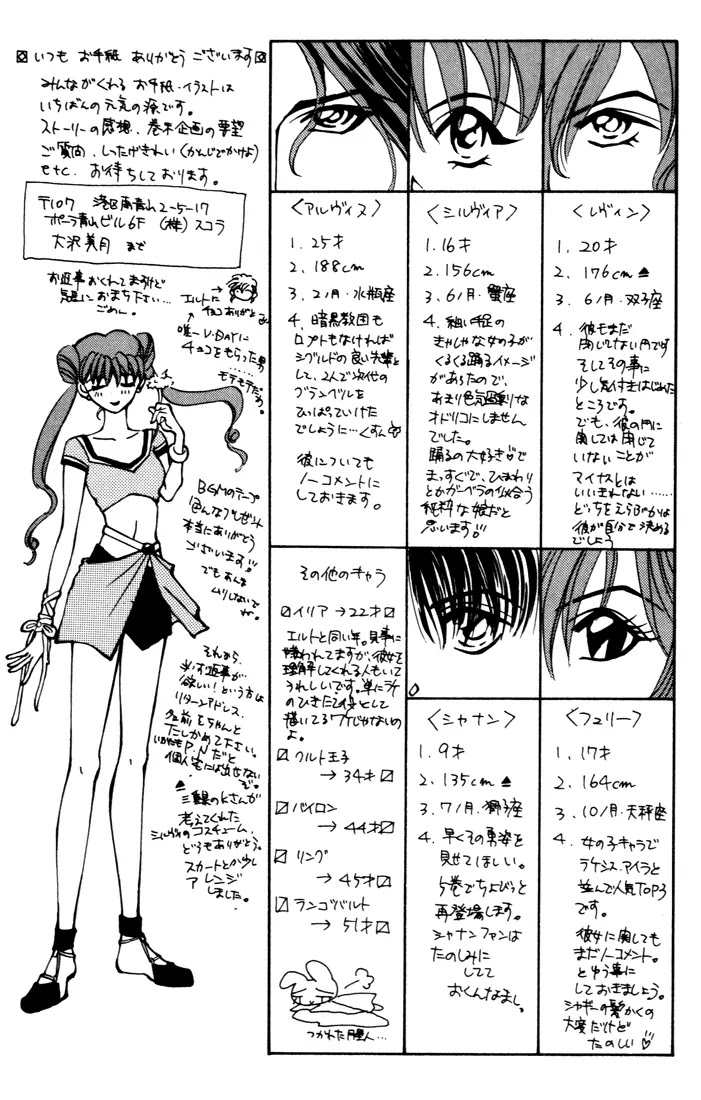 いつも お手紙 ありがとう ございます
みんながくれる お手紙・イラストは
いちばんの元気の源です。
ストーリーの感想、巻末企画の要望
ご質問、したげきれい(かんじでかけよ)
etc. お待ちしております。
〒107 港区南青山2-5-17
ポーラ青山ビル6F (株)スコラ
大沢美月 まで
お返事おくれてますけど
気長におまち下さい…
ごめんー。
エルトに
チョコありがとう
唯一V・DAYに
チョコをもらった男
……モテモテだな。
BGMのテープ
色んなプレゼント
本当にありがとう
ございます!!
でもあんま
ムリしないでね。
それから、
必ず返事が
欲しい!という方は
リターンアドレス、
名前をちゃんと
たしかめて下さい。
いかんせんP.Nだと
個人宅には出せないぞ。
三重のKさんが
考えてくれた
シルヴィのコスチューム、
どうもありがとう。
スカートとか少し
アレンジ
しました。
〈アルヴィス〉
1. 25才
2. 188cm
3. 2月・水瓶座
4. 暗黒教団も
ロプトもなければ
シグルドの良い先輩と
して、2人で次代の
グランベルを
ひっぱっていけた
でしょうに…くすん
彼についても
ノーコメントに
しておきます。
〈シルヴィア〉
1. 16才
2. 156cm
3. 6月・蟹座
4. 細い手足の
きゃしゃな女の子が
くるくる踊るイメージ
があったので、
あまり色気過剰な
オドリコにしません
でした。
踊るの大好き♡で
まっすぐで、ひまわり
とかガーベラの似合う
純粋な娘だと
思います!!
〈レヴィン〉
1. 20才
2. 176cm▲
3. 6月・双子座
4. 彼もまだ
閉じてない円です
そしてその事に
少し気付きはじめた
ところです。
でも、彼の円に
関しては閉じて
いないことが
マイナスとは
いいきれない……
どっちをえらぶかは
彼が自分で決める
でしょう
その他のキャラ
イリア→22才
エルトと同い年。見事に
嫌われてますが、彼女を
理解してくれる人もいて
うれしいです。単にラケ
のひきたて役として
描いてるワケじゃないの
よ。
クルト王子
→34才
バイロン
→44才
リング
→45才
ランゴバルト
→51才
つかれた月星人…
〈シャナン〉
1. 9才
2. 135cm▲
3. 7月・獅子座
4. 早くその勇姿を
見せてほしい。
5巻でちょびっと
再登場します。
シャナンファンは
たのしみに
してて
おくんなまし。
〈フュリー〉
1. 17才
2. 164cm
3. 10月・天秤座
4. 女の子キャラで
ラケシス、アイラと
並んで人気TOP3
です。
彼女に関しても
まだノーコメント。
とゆう事に
しておきましょう。
シャギーの髪かくの
大変だけど
たのしい!!♡